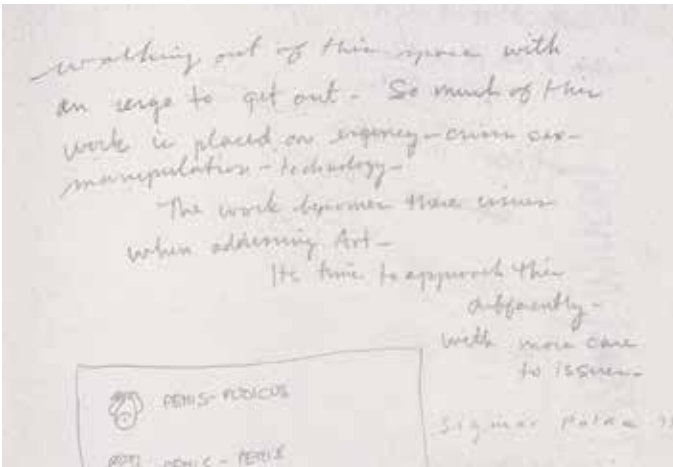 walking out of this space with
an urge to get out - So much of this
work is placed on urgency - crisis sex -
manipulation - technology -
The work becomes these issues
when addressing Art -
Its time to approach this
differently -
with more care
to issues -
PENIS - PUDICUS
Sigmar Polke
PENIS - PENIX